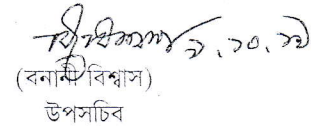 ৯.১০.১৯
(বনানী বিশ্বাস)
উপসচিব